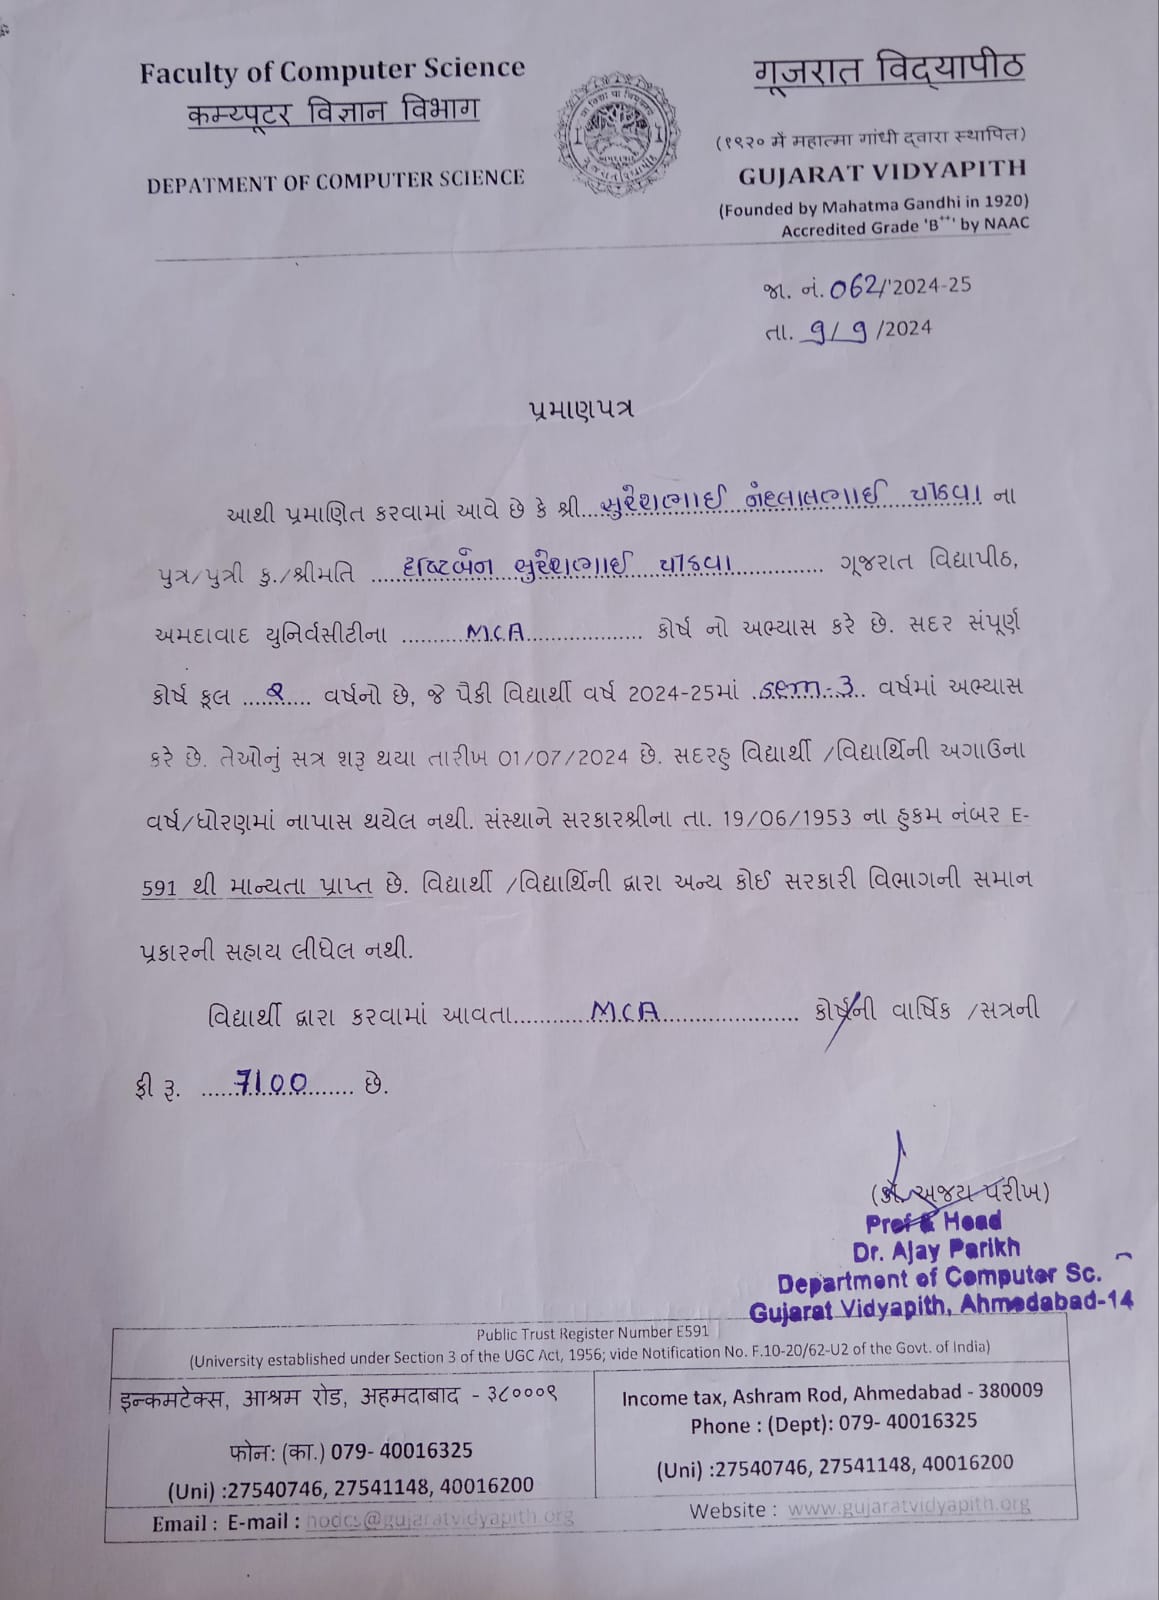 Faculty of Computer Science
कम्प्यूटर विज्ञान विभाग
DEPATMENT OF COMPUTER SCIENCE
गूजरात विद्यापीठ
(१९२० में महात्मा गांधी द्वारा स्थापित)
GUJARAT VIDYAPITH
(Founded by Mahatma Gandhi in 1920)
Accredited Grade 'B++' by NAAC
જા. નં. 062/'2024-25
તા. 9/9/2024
પ્રમાણપત્ર
આથી પ્રમાણિત કરવામાં આવે છે કે શ્રી...સુરેશભાઈ નંદલાલભાઈ ચોકવા ના
પુત્ર/પુત્રી કુ./શ્રીમતિ ... સુરેશભાઈ ચોકવા............ ગૂજરાત વિદ્યાપીઠ,
અમદાવાદ યુનિર્વસીટીના ..........MCA................. કોર્ષ નો અભ્યાસ કરે છે. સદર સંપૂર્ણ
કોર્ષ કૂલ ....૨.... વર્ષનો છે, જે પૈકી વિદ્યાર્થી વર્ષ 2024-25માં .sem-3.. વર્ષમાં અભ્યાસ
કરે છે. તેઓનું સત્ર શરૂ થયા તારીખ 01/07/2024 છે. સદરહુ વિદ્યાર્થી /વિદ્યાર્થિની અગાઉના
વર્ષ/ધોરણમાં નાપાસ થયેલ નથી. સંસ્થાને સરકારશ્રીના તા. 19/06/1953 ના હુકમ નંબર E-
591 થી માન્યતા પ્રાપ્ત છે. વિદ્યાર્થી /વિદ્યાર્થિની દ્વારા અન્ય કોઈ સરકારી વિભાગની સમાન
પ્રકારની સહાય લીધેલ નથી.
વિદ્યાર્થી દ્વારા કરવામાં આવતા...........MCA................... કોર્ષની વાર્ષિક /સત્રની
ફી રૂ. ....7100....... છે.
(ડૉ. અજય પરીખ)
Prof & Head
Dr. Ajay Parikh
Department of Computer Sc.
Gujarat Vidyapith, Ahmedabad-14
Public Trust Register Number E591
(University established under Section 3 of the UGC Act, 1956; vide Notification No. F.10-20/62-U2 of the Govt. of India)
इन्कमटेक्स, आश्रम रोड, अहमदाबाद - ३८०००९
फोन: (का.) 079- 40016325
(Uni) :27540746, 27541148, 40016200
Income tax, Ashram Rod, Ahmedabad - 380009
Phone : (Dept): 079- 40016325
(Uni) :27540746, 27541148, 40016200
Email : E-mail : hodcs@gujaratvidyapith.org
Website : www.gujaratvidyapith.org